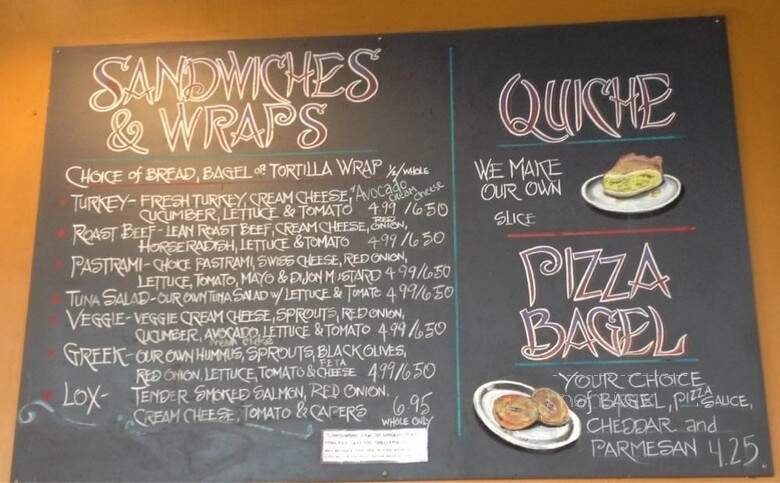 SANDWICHES
& WRAPS
CHOICE OF BREAD, BAGEL OR TORTILLA WRAP ½/WHOLE
TURKEY- FRESH TURKEY, CREAM CHEESE, *Avocado cream cheese
CUCUMBER, LETTUCE & TOMATO 4.99/6.50
ROAST BEEF- LEAN ROAST BEEF, CREAM CHEESE, RED ONION,
HORSERADISH, LETTUCE & TOMATO 4.99/6.50
PASTRAMI- CHOICE PASTRAMI, SWISS CHEESE, RED ONION,
LETTUCE, TOMATO, MAYO & DIJON MUSTARD 4.99/6.50
TUNA SALAD- OUR OWN TUNA SALAD W/ LETTUCE & TOMATO 4.99/6.50
VEGGIE- VEGGIE CREAM CHEESE, SPROUTS, RED ONION,
CUCUMBER, AVOCADO, LETTUCE & TOMATO 4.99/6.50
GREEK- OUR OWN HUMMUS, SPROUTS, BLACK OLIVES,
RED ONION, LETTUCE, TOMATO & FETA CHEESE 4.99/6.50
LOX- TENDER SMOKED SALMON, RED ONION,
CREAM CHEESE, TOMATO & CAPERS 6.95
WHOLE ONLY
QUICHE
WE MAKE
OUR OWN
SLICE
PIZZA
BAGEL
YOUR CHOICE
OF BAGEL, PIZZA SAUCE,
CHEDDAR and
PARMESAN 4.25